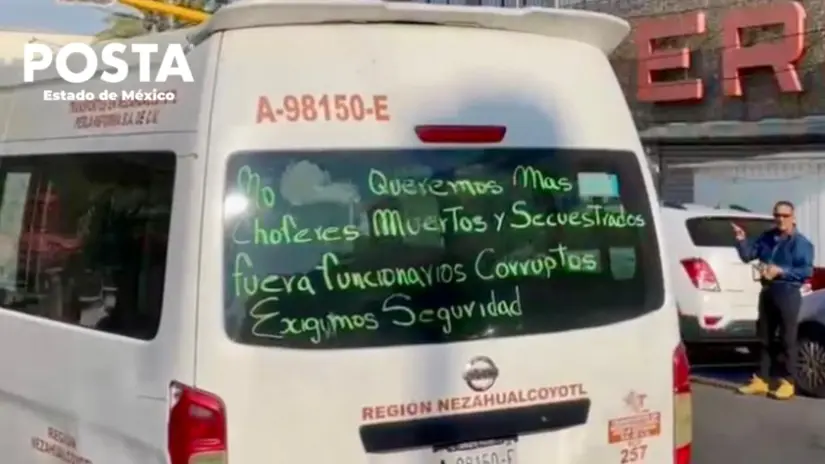 POSTA
Estado de México
ER
A-98150-E
No Queremos Mas
choferes Muertos y Secuestrados
fuera funcionarios Corruptos
Exigimos Seguridad
REGIÓN NEZAHUALCOYOTL
REGIÓN
257